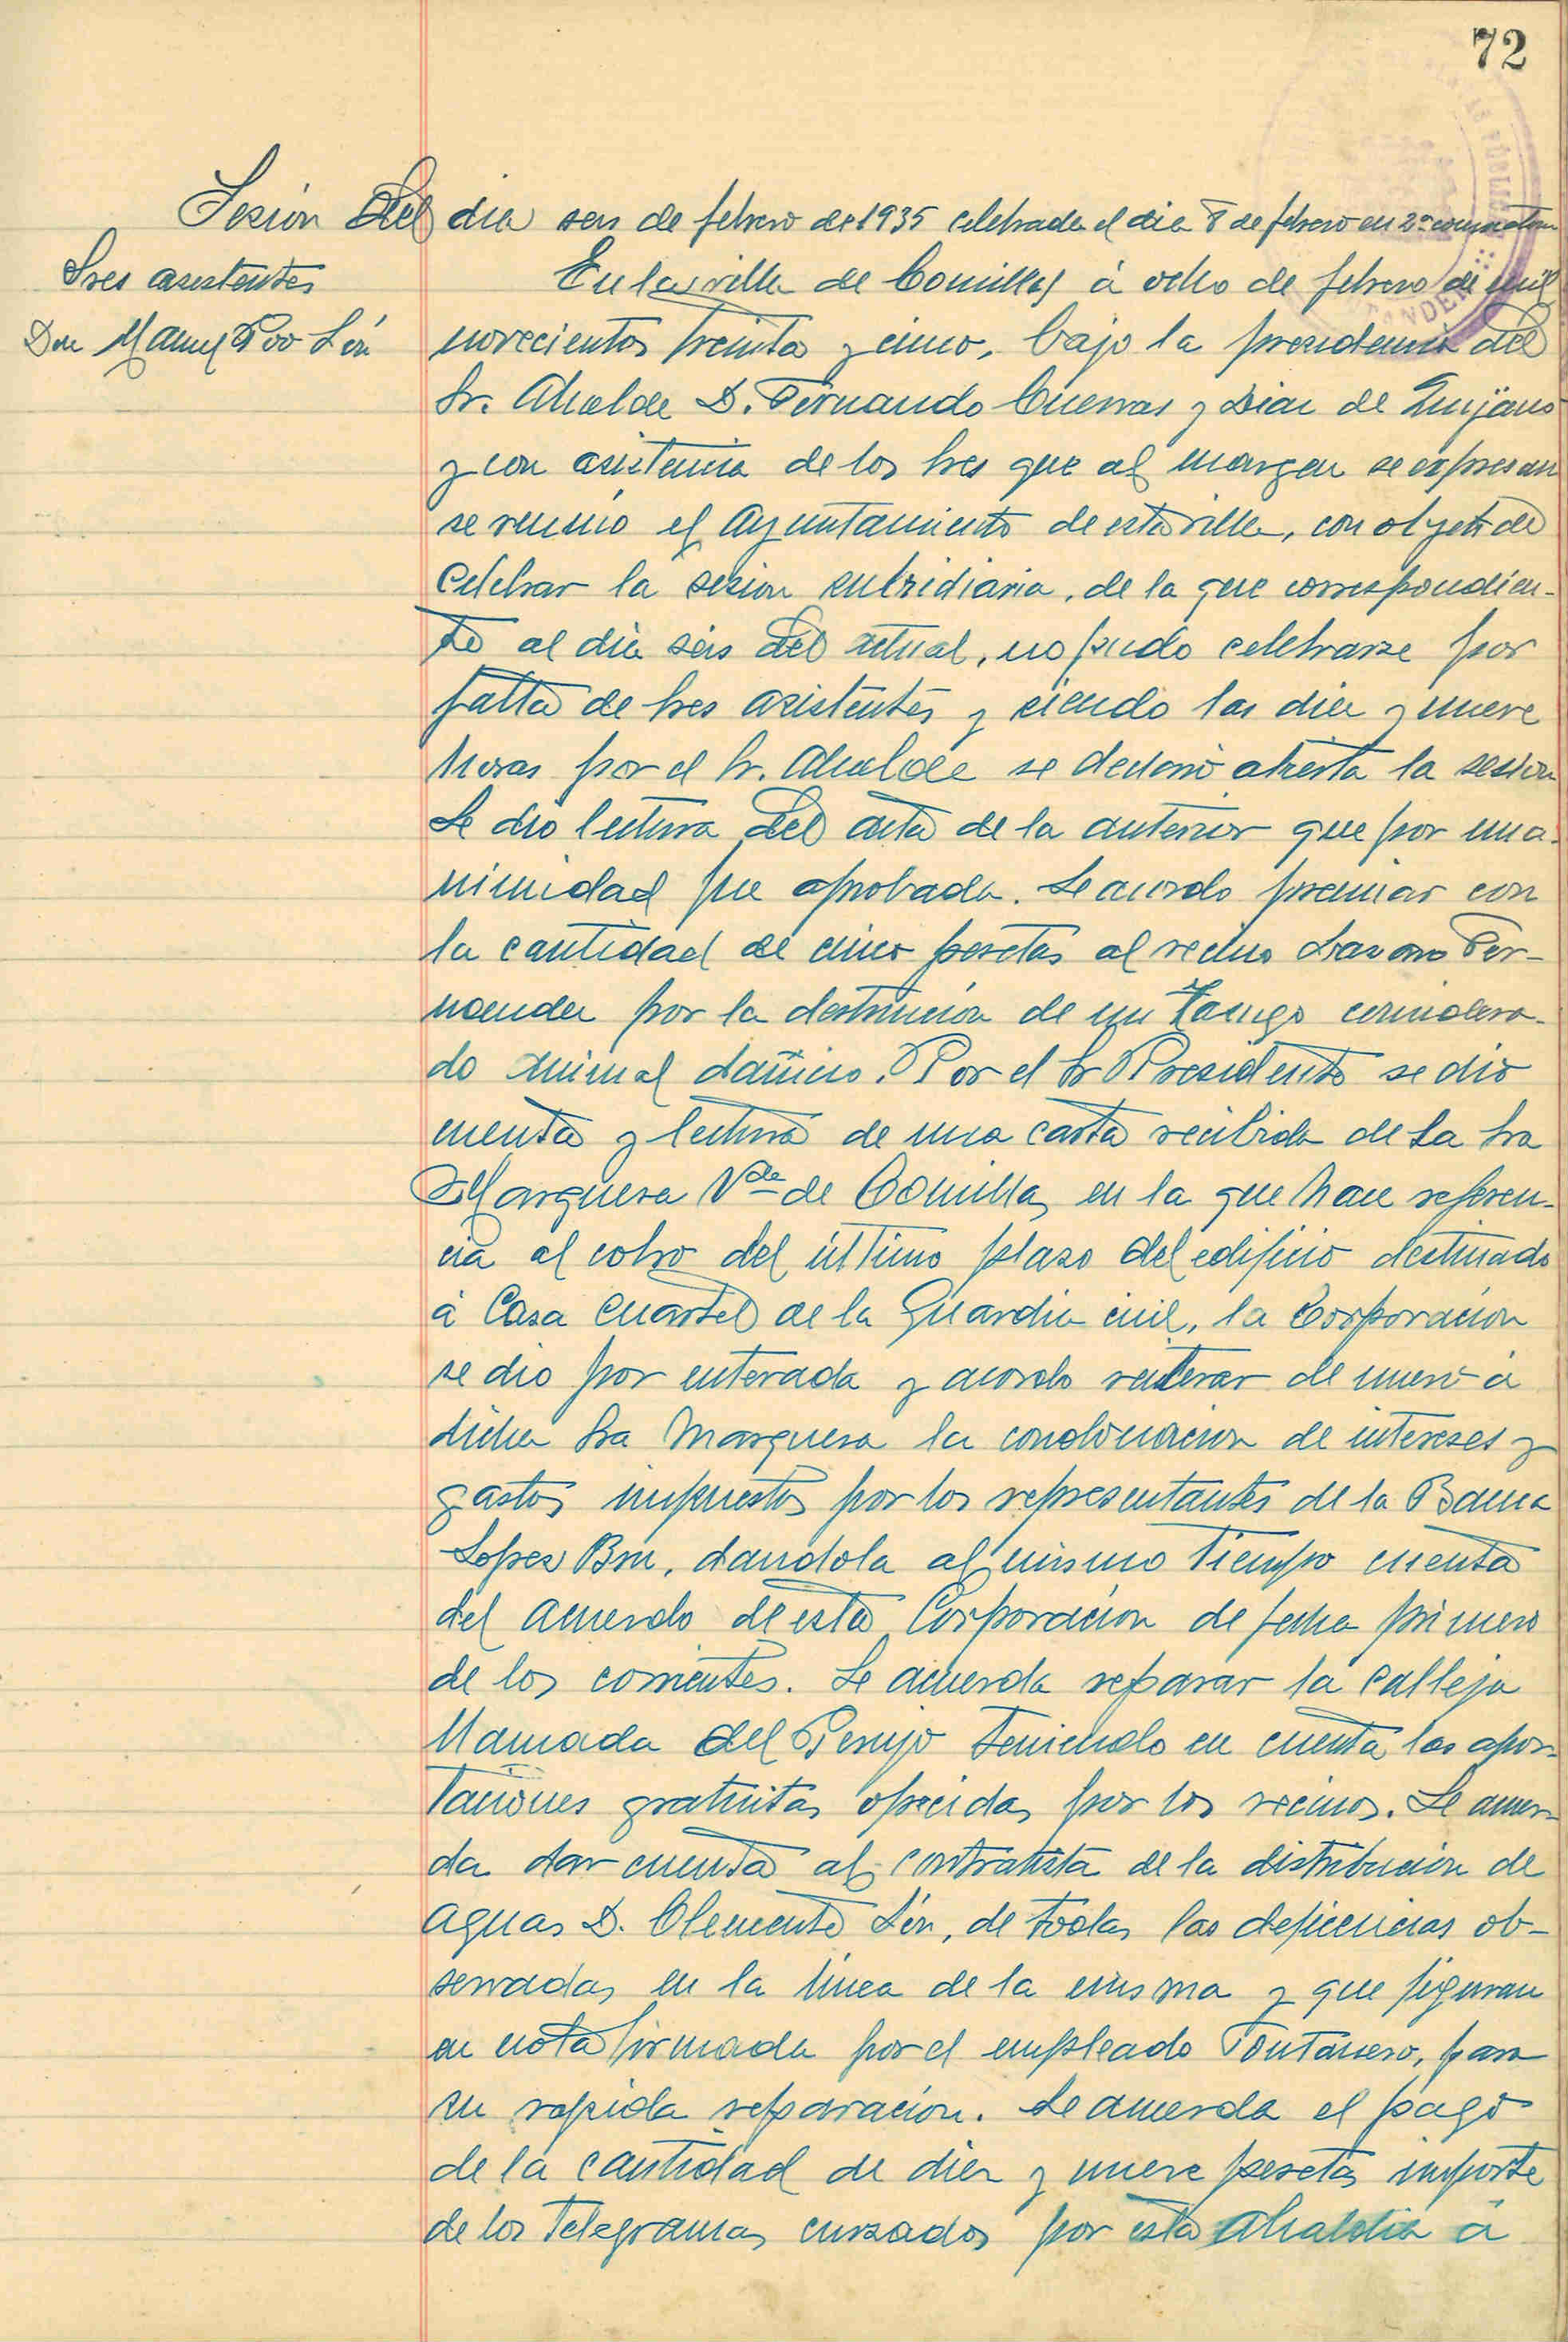 72
Sesión del dia seis de febrero de 1935 celebrada el dia 8 de febrero en 2ª convocatoria
Sres asistentes
Don Manuel Poo
En la villa de Comillas á ocho de febrero de mil
novecientos treinta y cinco, bajo la presidencia del
Sr. Alcalde D. Fernando Cuevas y Diaz de Quijano
y con asistencia de los Sres que al margen se expresan
se reunio el Ayuntamiento de esta villa, con objeto de
celebrar la sesion subsidiaria, de la que correspondien-
te al dia seis del actual, no pudo celebrarse por
falta de Sres asistentes y siendo las diez y nueve
horas por el Sr. Alcalde se declaró abierta la sesion
Se dio lectura del acta de la anterior que por una-
nimidad fue aprobada. Se acordo premiar con
la cantidad de cinco pesetas al vecino Lazaro Fer-
nandez por la destrucción de un considera-
do animal dañino. Por el Sr Presidente se dio
cuenta y lectura de una carta recibida de la Sra
Marquesa Vda de Comillas en la que hace referen-
cia al cobro del último plazo del edificio destinado
á Casa Cuartel de la Guardia civil, la Corporación
se dio por enterada y acordo reiterar de nuevo á
dicha Sra Marquesa la condonacion de intereses y
gastos impuestos por los representantes de la Banca
Lopez Bru, dandola al mismo tiempo cuenta
del acuerdo de esta Corporación de fecha primero
de los corrientes. Se acuerda reparar la calleja
llamada del teniendo en cuenta las apor-
taciones gratuitas ofrecidas por los vecinos. Se acuer-
da dar cuenta al contratista de la distribución de
aguas D. Clemente de todas las deficiencias ob-
servadas en la línea de la misma y que figuran
en nota firmada por el empleado Fontanero, para
su rapida reparación. Se acuerda el pago
de la cantidad de diez y nueve pesetas importe
de los telegramas cursados por esta Alcaldia á